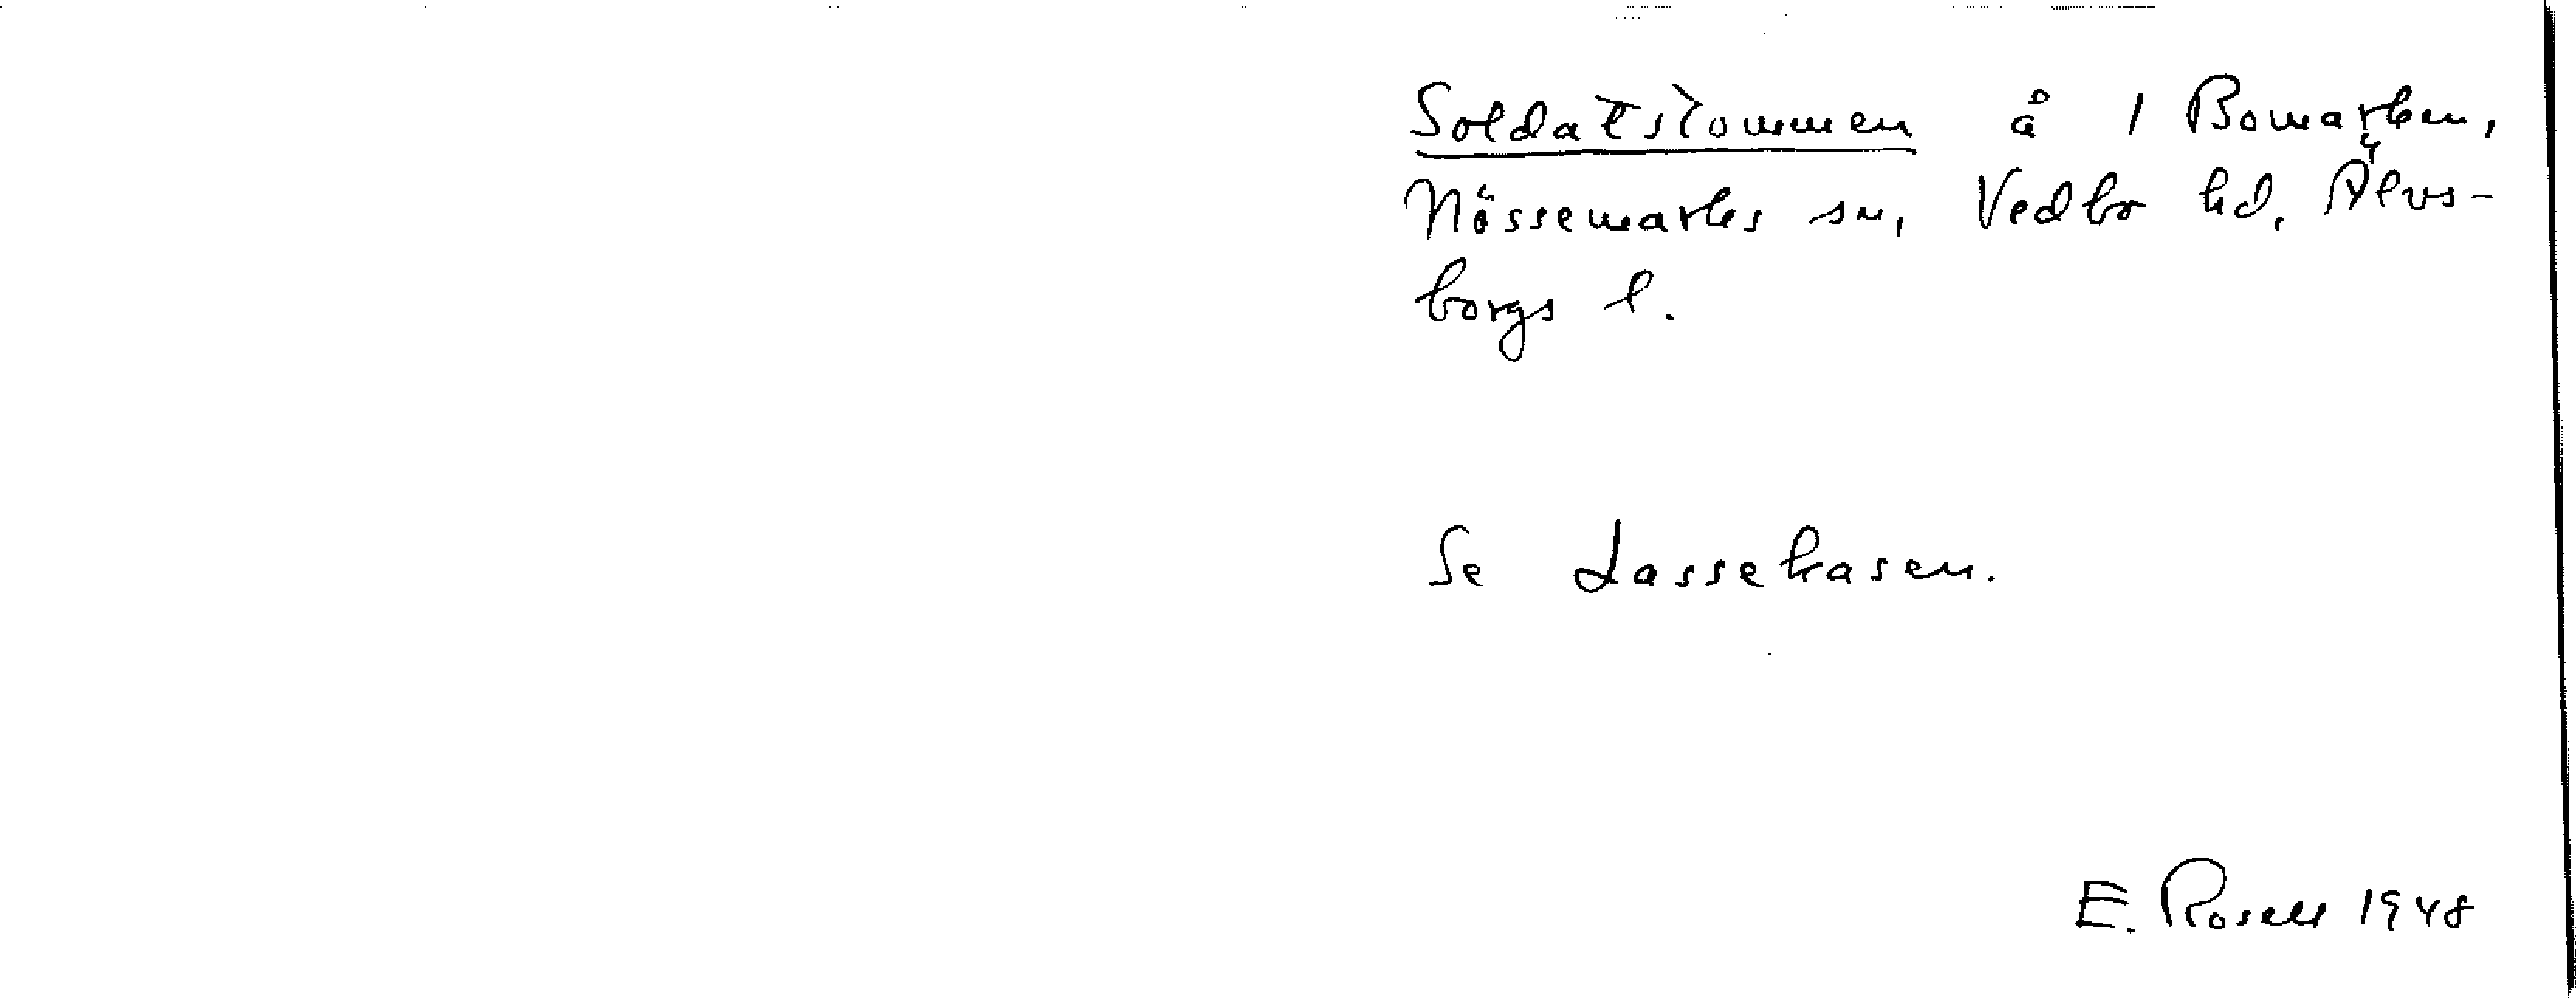 Soldatstommen å 1 Bomarken,
Nössemarks sn, Vedbo hd. Älvs-
borgs l.
Se Lassekasen.
E. Rosell 1948